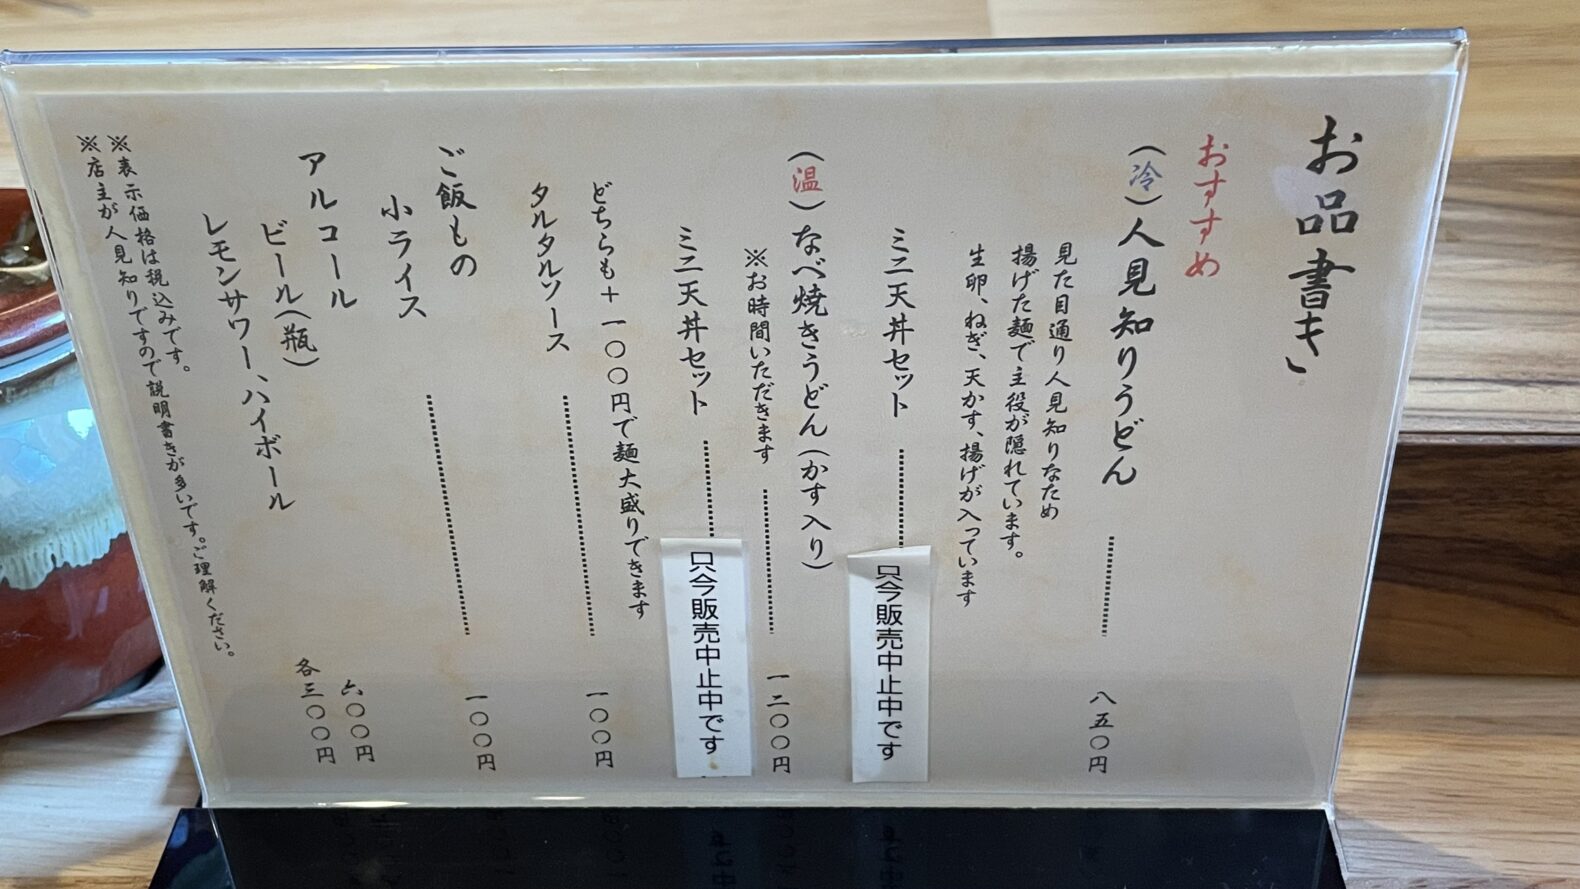 お品書き
おすすめ
(冷)人見知りうどん 八五〇円
見た目通り人見知りなため
揚げた麺で主役が隠れています。
生卵、ねぎ、天かす、揚げが入っています
ミニ天丼セット 只今販売中止中です
(温)なべ焼きうどん(かす入り)
※お時間いただきます 一二〇〇円
ミニ天丼セット 只今販売中止中です
どちらも+一〇〇円で麺大盛りできます
タルタルソース 一〇〇円
ご飯もの
小ライス 一〇〇円
アルコール
ビール(瓶) 六〇〇円
レモンサワー、ハイボール 各三〇〇円
※表示価格は税込みです。
※店主が人見知りですので説明書きが多いです。ご理解ください。